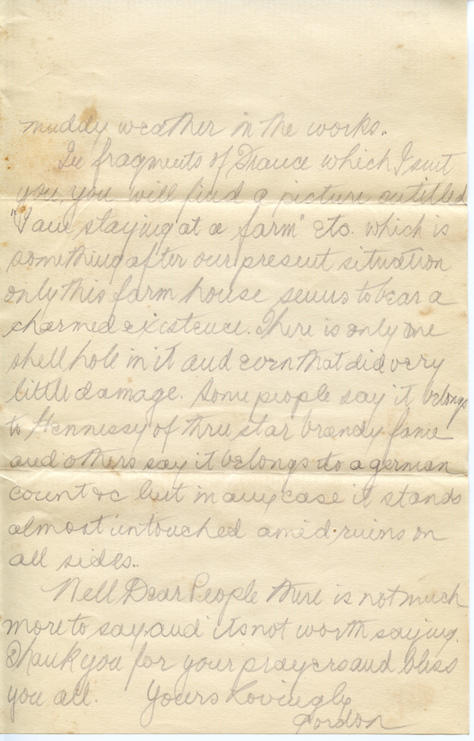 muddy weather in the works.
In fragments of France which I sent
you, you will find a picture entitled
"I am staying at a farm" etc. which is
something after our present situation
only this farm house seems to bear a
charmed existence. There is only one
shell hole in it and even that did very
little damage. Some people say it belongs
to Hennessy of three star brandy fame
and others say it belongs to a german
count &c but in any case it stands
almost untouched amid ruins on
all sides.
Well Dear People there is not much
more to say and its not worth saying.
Thank you for your prayers and bless
you all. Yours Lovingly
Gordon